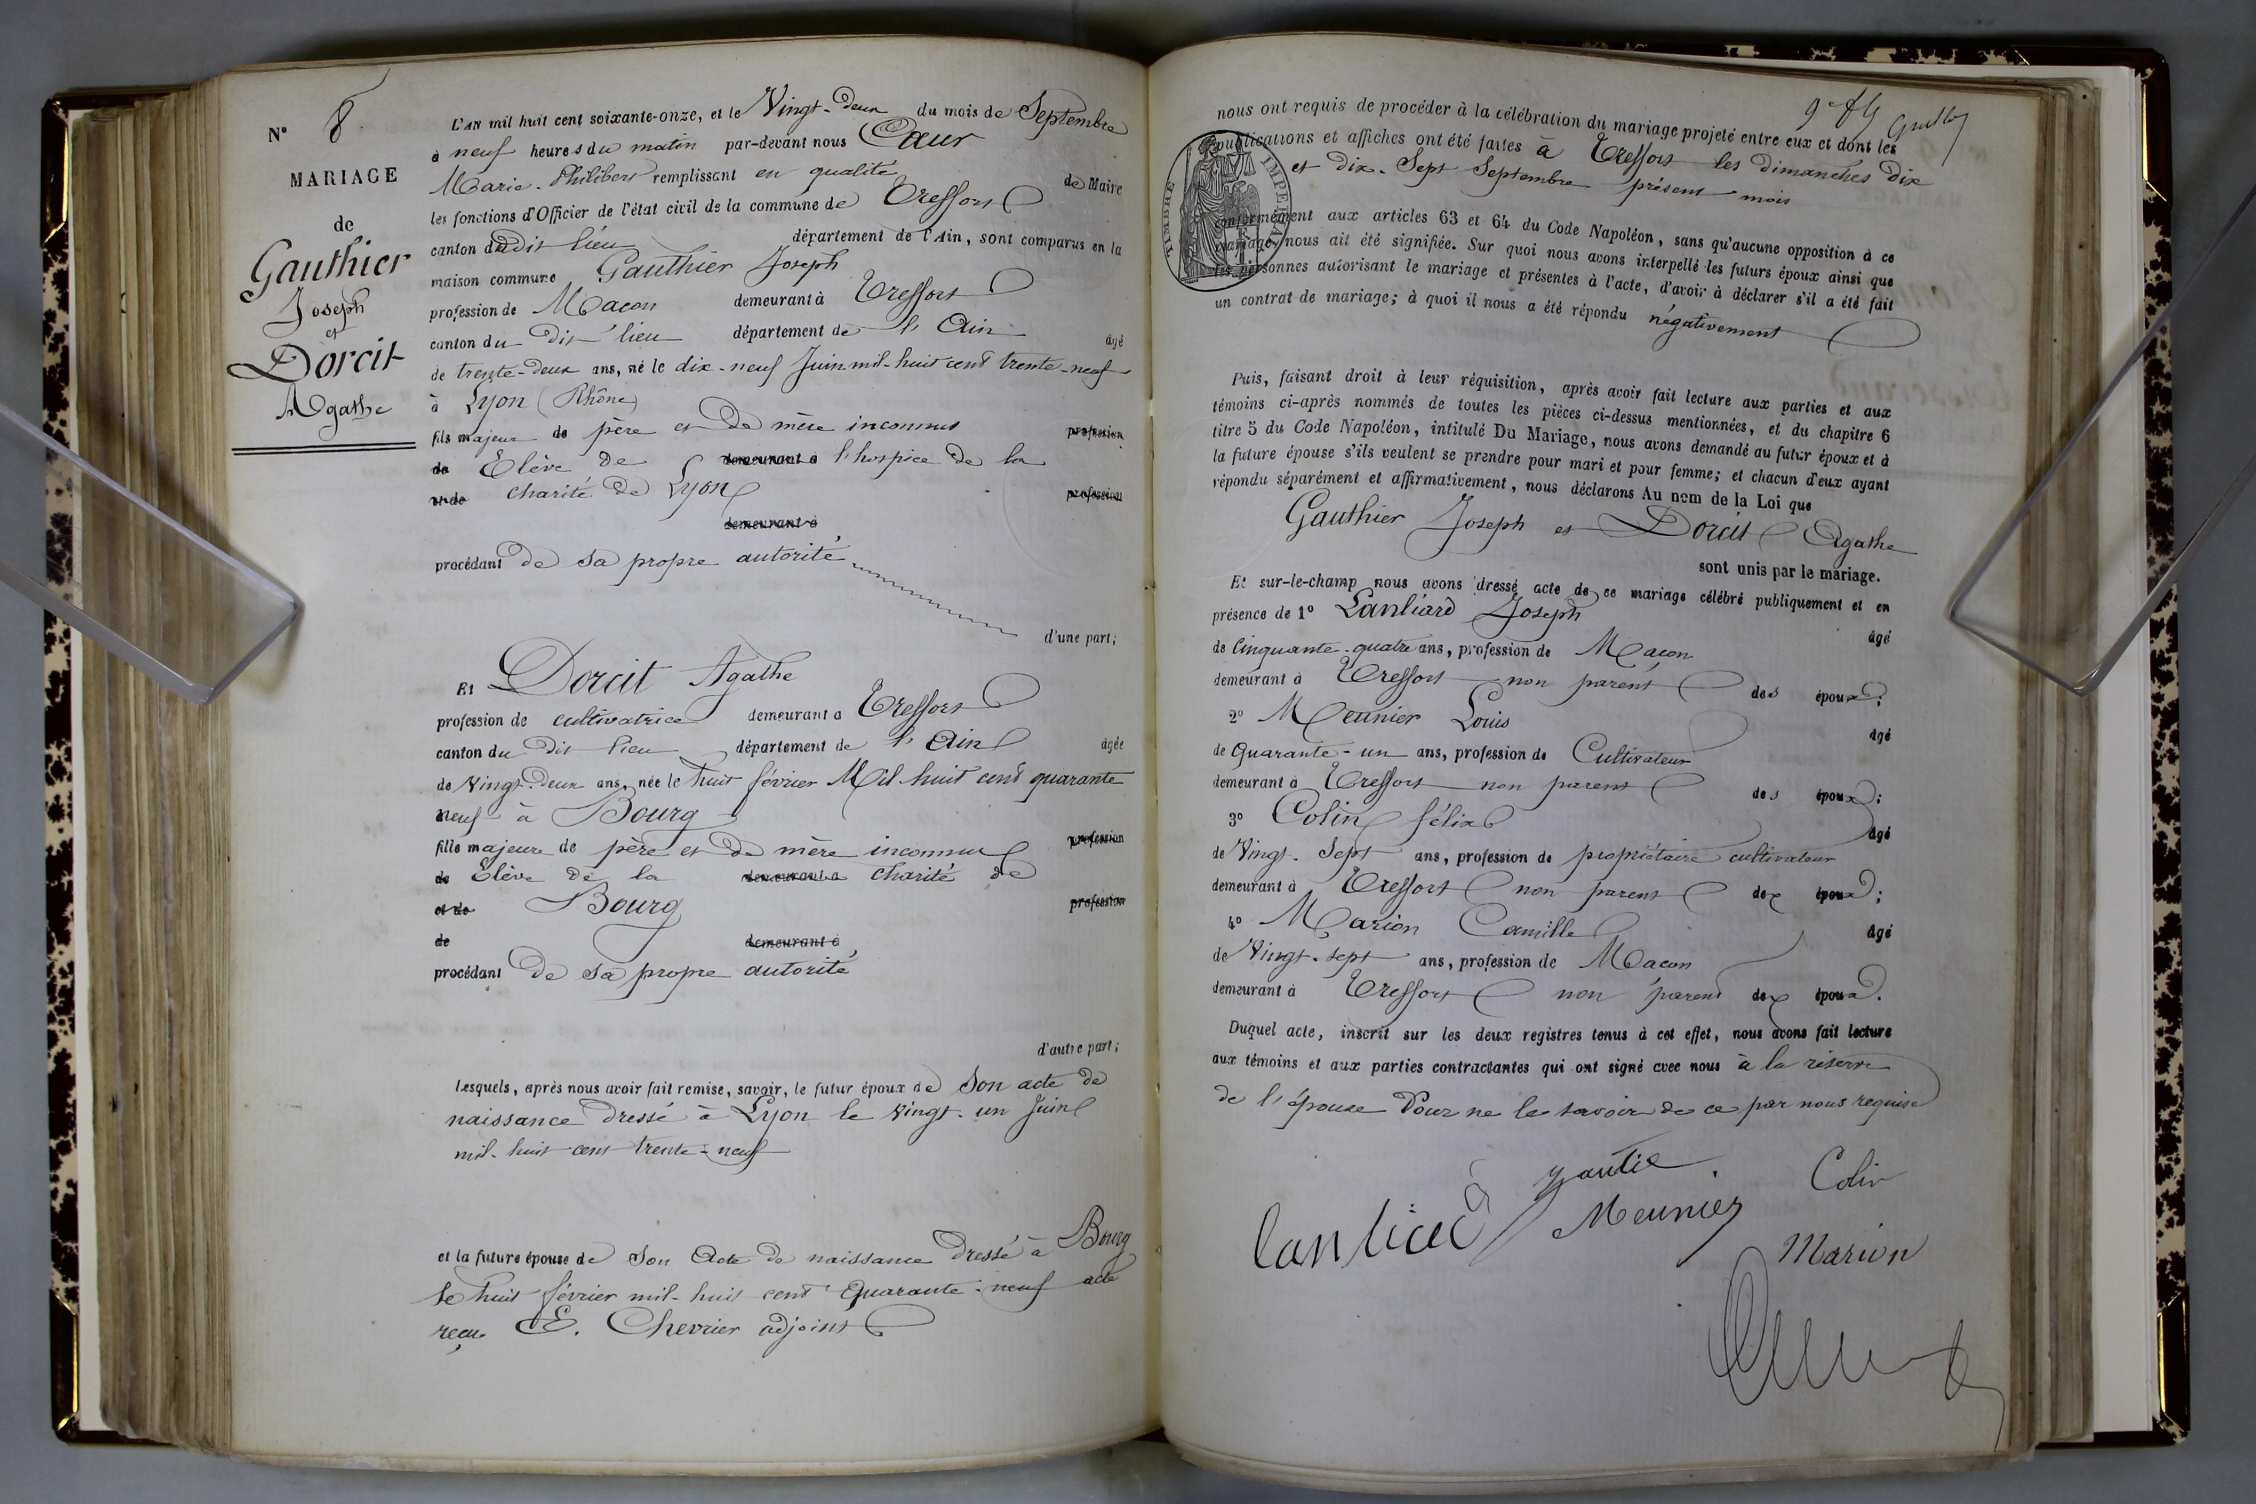 N° 8
MARIAGE
de
Gauthier
Joseph
et
Dorcit
Agathe
L'AN mil huit cent soixante-onze, et le Vingt-deux du mois de Septembre
à neuf heures du matin par-devant nous Cœur
Marie-Philibert remplissant en qualité de Maire
les fonctions d'Officier de l'état civil de la commune de Treffort
canton du dit lieu département de l'Ain, sont comparus en la
maison commune Gauthier Joseph
profession de Macon demeurant à Treffort
canton du dit lieu département de l'Ain âgé
de trente-deux ans, né le dix-neuf Juin mil-huit cent trente-neuf
à Lyon (Rhône)
fils majeur de père et de mère inconnus profession
de Elève de demeurant à l'hospice de la
et de charité de Lyon profession
demeurant à
procédant de sa propre autorité
d'une part;
Et Dorcit Agathe
profession de cultivatrice demeurant à Treffort
canton du dit lieu département de l'Ain âgée
de Vingt-deux ans, née le huit février Mil huit cent quarante
neuf à Bourg
fille majeure de père et de mère inconnus profession
de Elève de la demeurant à charité de
et de Bourg profession
de demeurant à
procédant de sa propre autorité
d'autre part;
Lesquels, après nous avoir fait remise, savoir, le futur époux de Son acte de
naissance dressé à Lyon le vingt-un Juin
mil-huit cent trente-neuf
et la future épouse de Son Acte de naissance dressé à Bourg
le huit février mil-huit cent Quarante-neuf acte
reçu E. Chevrier adjoint
nous ont requis de procéder à la célébration du mariage projeté entre eux et dont les
publications et affiches ont été faites à Treffort les dimanches dix
et dix-Sept Septembre présent mois
TIMBRE IMPERIAL
conformément aux articles 63 et 64 du Code Napoléon, sans qu'aucune opposition à ce
mariage nous ait été signifiée. Sur quoi nous avons interpellé les futurs époux ainsi que
les personnes autorisant le mariage et présentes à l'acte, d'avoir à déclarer s'il a été fait
un contrat de mariage; à quoi il nous a été répondu négativement
Puis, faisant droit à leur réquisition, après avoir fait lecture aux parties et aux
témoins ci-après nommés de toutes les pièces ci-dessus mentionnées, et du chapitre 6
titre 5 du Code Napoléon, intitulé Du Mariage, nous avons demandé au futur époux et à
la future épouse s'ils veulent se prendre pour mari et pour femme; et chacun d'eux ayant
répondu séparément et affirmativement, nous déclarons Au nom de la Loi que
Gauthier Joseph et Dorcit Agathe
sont unis par le mariage.
Et sur-le-champ nous avons dressé acte de ce mariage célébré publiquement et en
présence de 1° Lanliard Joseph âgé
de Cinquante-quatre ans, profession de Macon
demeurant à Treffort non parent des époux;
2° Meunier Louis âgé
de Quarante-un ans, profession de Cultivateur
demeurant à Treffort non parent des époux;
3° Colin félix âgé
de Vingt-Sept ans, profession de propriétaire cultivateur
demeurant à Treffort non parent des époux;
4° Marion Camille âgé
de Vingt-sept ans, profession de Macon
demeurant à Treffort non parent des époux.
Duquel acte, inscrit sur les deux registres tenus à cet effet, nous avons fait lecture
aux témoins et aux parties contractantes qui ont signé avec nous à la réserve
de l'épouse Pour ne le savoir de ce par nous requise
Colin
Meunier
Marion